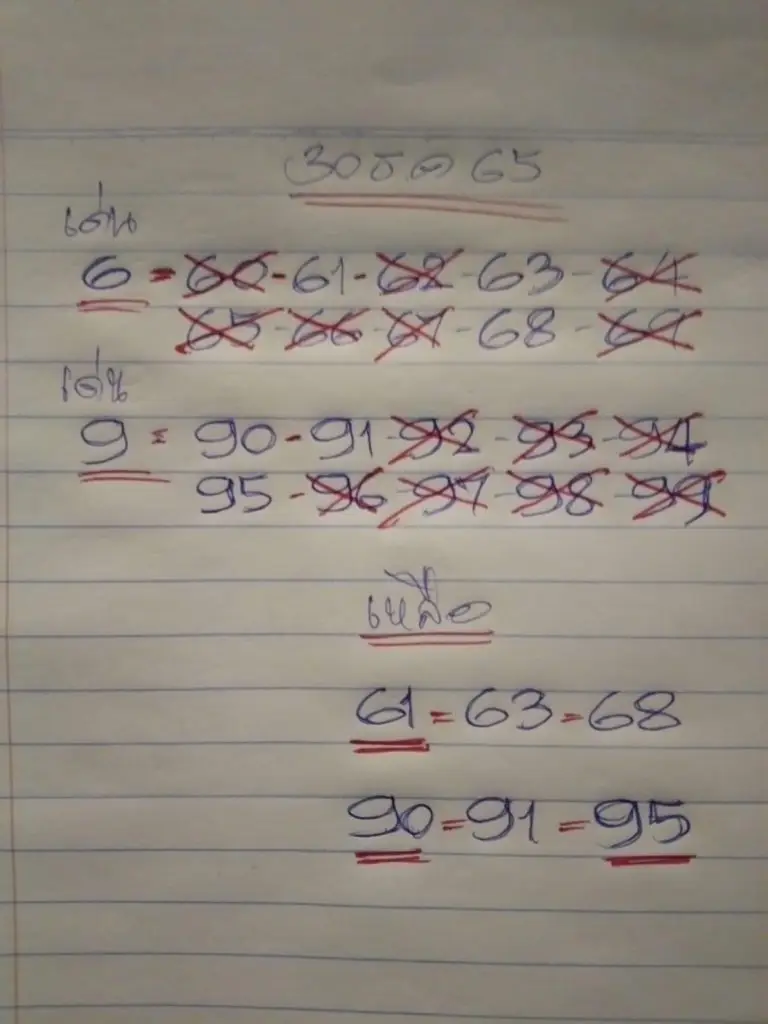 30 ธ ค 65
เด่น
6 = 60 - 61 - 62 - 63 - 64
65 - 66 - 67 - 68 - 69
เด่น
9 = 90 - 91 - 92 - 93 - 94
95 - 96 - 97 - 98 - 99
เหลือ
61 = 63 = 68
90 = 91 = 95